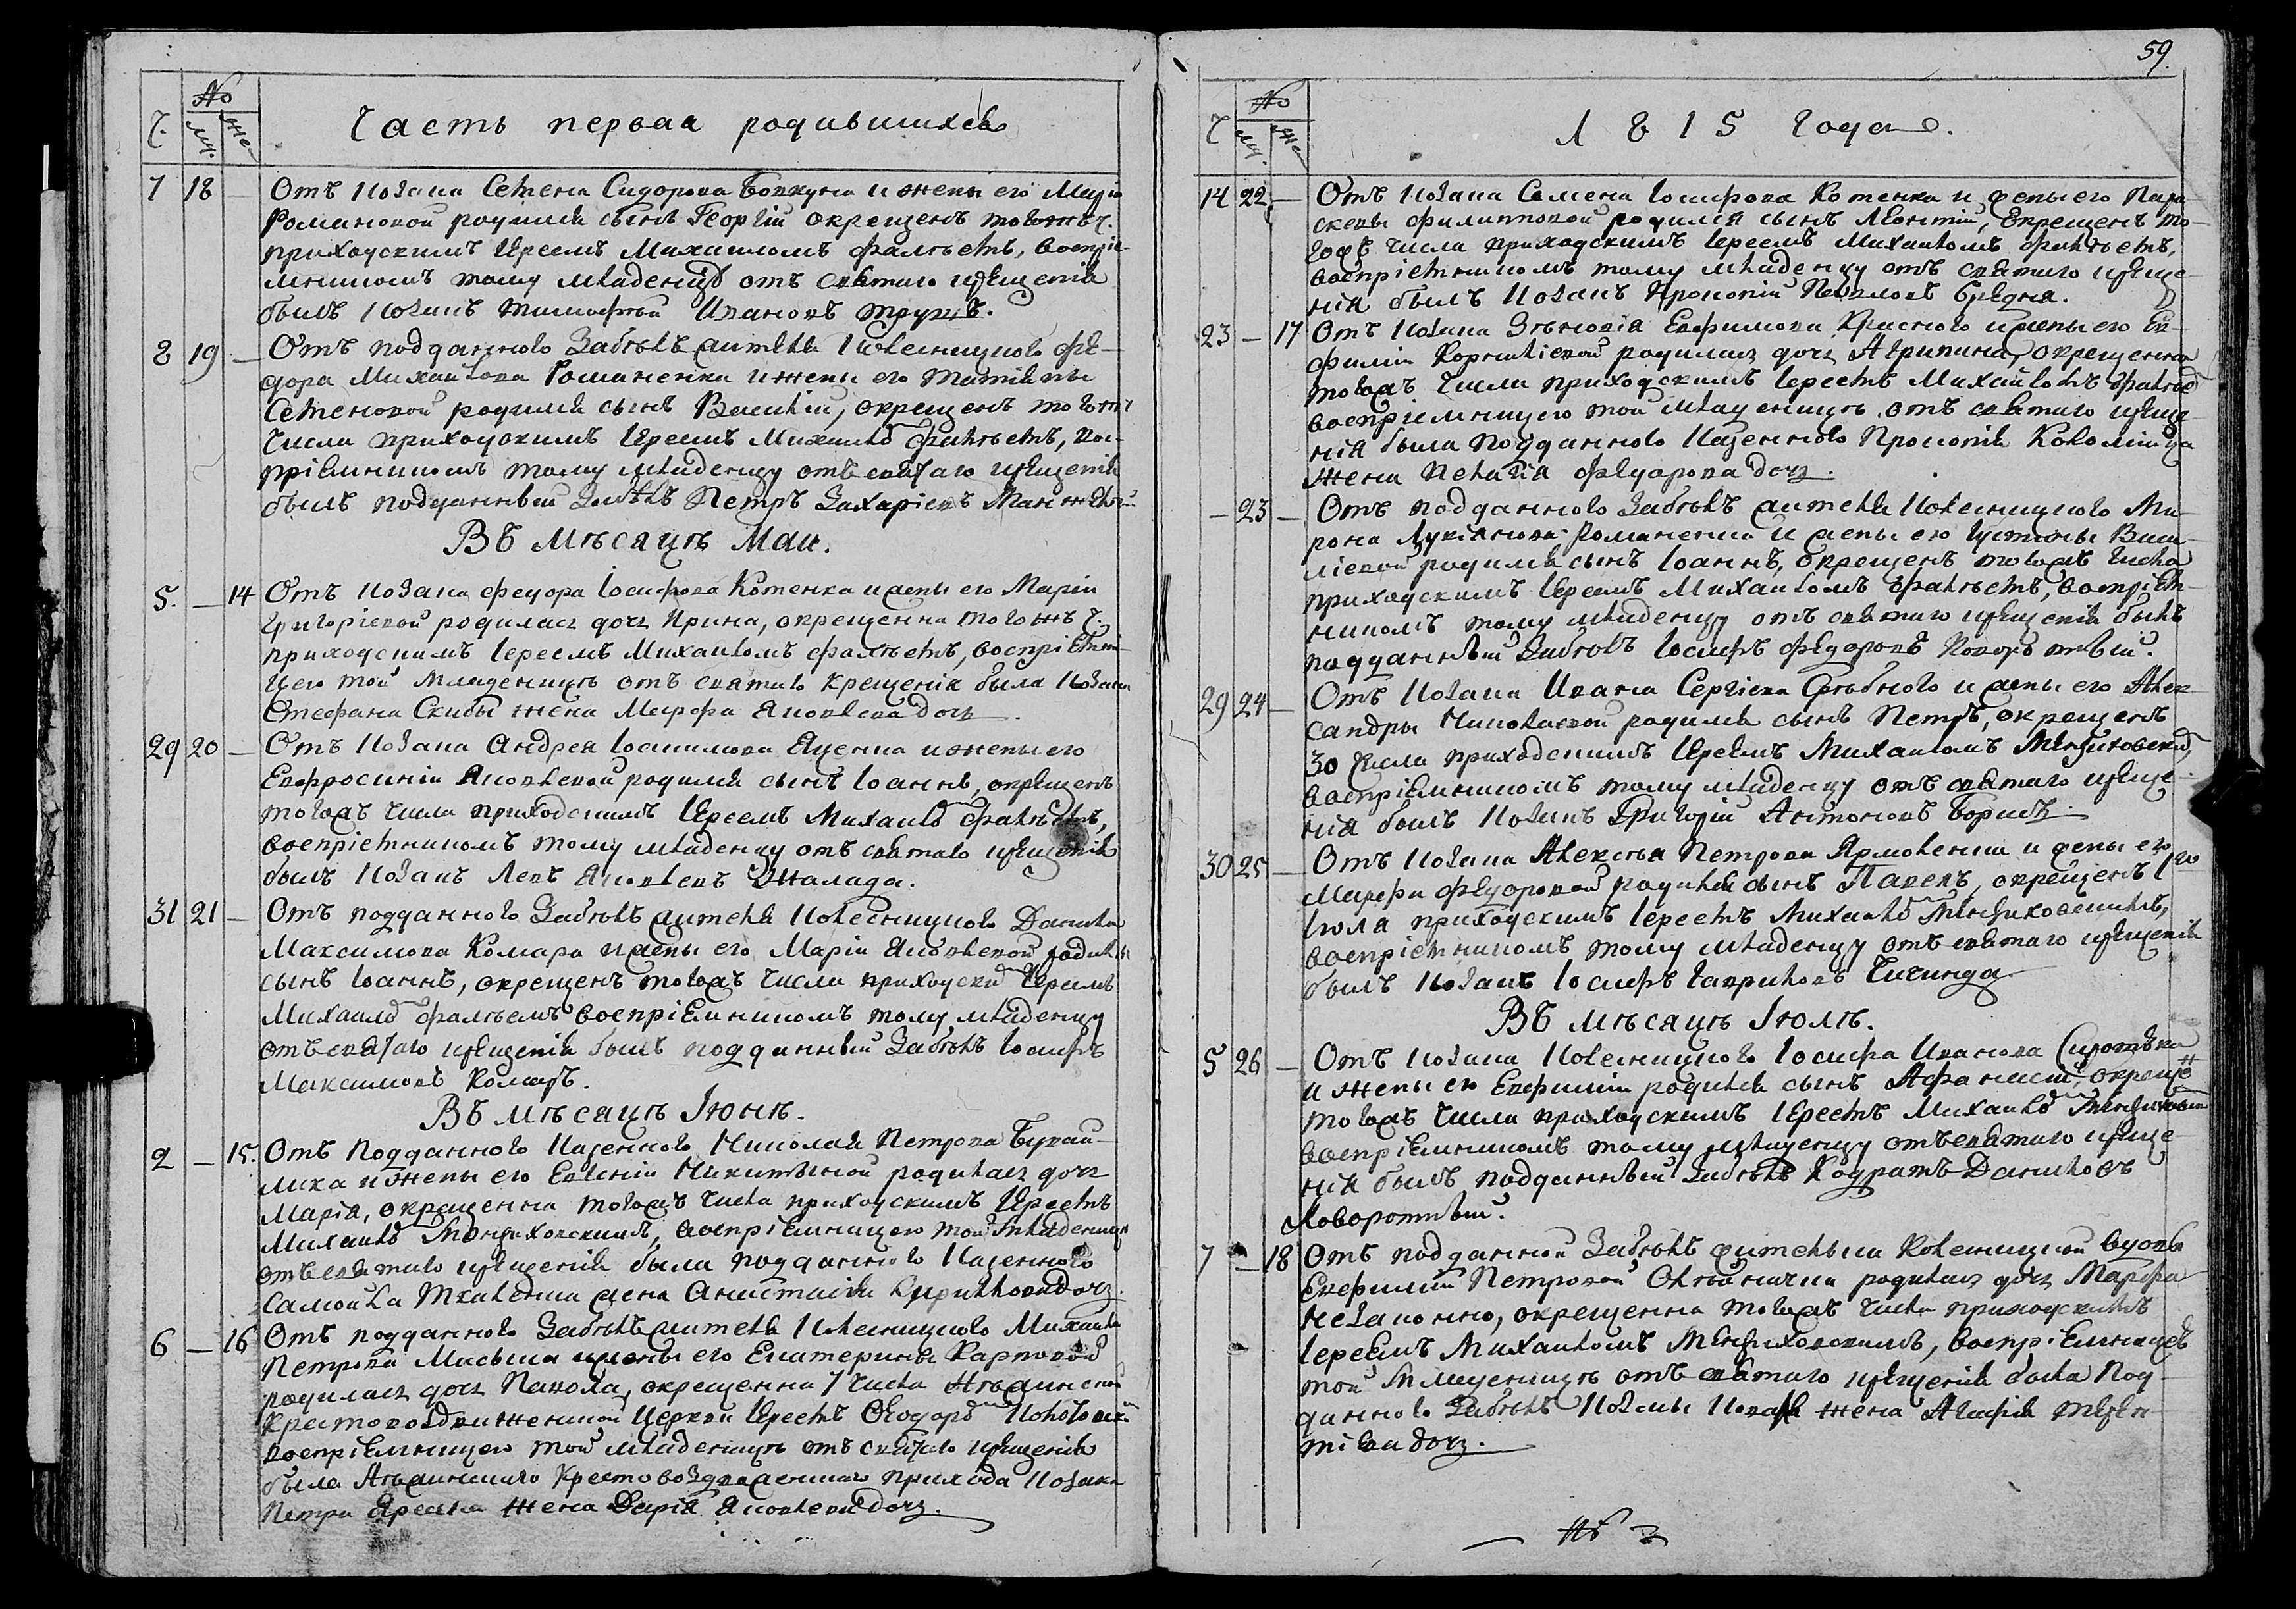 59.
№
Ч. Му. Же.
Часть первая родившихся
7 18 — Отъ Козака Семена Сидорова и жены его
Романовой родился сынъ Георгій окрещенъ тогожъ ч.
приходскимъ Іереемъ Михаиломъ Фалѣемъ, воспріе-
мникомъ тому младенцу отъ святаго крещенія
былъ Козакъ Тимофей Ивановъ
8 19 — Отъ подданного Забѣлъ жителя Колесницкого Фе-
дора Михайлова Романенка и жены его Татіяны
Семеновой родился сынъ Василій, окрещенъ тогожъ
числа приходскимъ Іереемъ Михаило Фалѣемъ, вос-
пріемникомъ тому младенцу отъ святаго крещенія
былъ подданный Забѣлъ Петръ Захаріевъ
Въ мѣсяцѣ Маи.
5. — 14 Отъ Козака Федора Іосифова Котенка и жены его Маріи
Григоріевой родилась дочь Ирина, окрещенна тогожъ ч.
приходскимъ Іереемъ Михаиломъ Фалѣемъ, воспріемни-
цею той младеницѣ отъ святаго крещенія была Козака
Стефана Скибы жена Марфа Яковлева дочь.
29 20 — Отъ Козака Андрея Іоакимова Яценка и жены его
Евфросиніи Яковлевой родился сынъ Іоаннъ, окрещенъ
тогожъ числа приходскимъ Іереемъ Михаило Фалѣемъ,
воспріемникомъ тому младенцу отъ святаго крещенія
былъ Козакъ Левъ Яковлевъ Жалада.
31 21 — Отъ подданного Забѣлъ жителя Колесницкого Данила
Максимова Комара и жены его Маріи Яковлевой родился
сынъ Іоаннъ, окрещенъ тогожъ числа приходски Іереемъ
Михаило Фалѣемъ воспріемникомъ тому младенцу
отъ святаго крещенія былъ подданный Забѣлъ Іосифъ
Максимовъ Комаръ.
Въ мѣсяцѣ Іюнѣ.
2 — 15. Отъ подданного Казенного Николая Петрова
и жены его Евгеніи Никитиной родилась дочь
Марія, окрещенна тогожъ числа приходскимъ Іереемъ
Михаило воспріемницею той младеницѣ
отъ святаго крещенія была подданного Казенного
Самойла жена Анастасія Кирилова дочь.
6 — 16 Отъ подданного Забѣлъ жителя Колесницкого Михаила
Петрова и жены его Екатерины Карповой
родилась дочь окрещенна 7 числа
Крестовоздвиженской Церкви Іереемъ Феодоро
воспріемницею той младеницѣ отъ святаго крещенія
была Крестовоздвиженского прихода Козака
Петра жена Дарія Яковлева дочь.
№
Ч Му. Же.
1815 Года.
14 22 — Отъ Козака Семена Іосифова Котенка и жены его Пара-
скевы Филиповой родился сынъ Леонтій, окрещенъ то-
гожъ числа приходскимъ Іереемъ Михаиломъ Фалѣемъ,
воспріемникомъ тому младенцу отъ святаго креще-
нія былъ Козакъ Прокопій Павловъ
23 — 17 Отъ Козака Зѣновія Евфимова Красного и жены его Ев-
фиміи Корниліевой родилась дочь Агрипина, окрещенна
тогожъ числа приходскимъ Іереемъ Михайломъ Фалѣе
воспріемницею той младеницѣ отъ святаго креще-
нія была подданного Казенного Прокопія Коломійца
жена Пелагія Федорова дочь.
— 23 — Отъ подданного Забѣлъ жителя Колесницкого Ми-
рона Лукіянова Романенка и жены его Іустины Васи-
ліевой родился сынъ Іоаннъ, окрещенъ тогожъ числа
приходскимъ Іереемъ Михаиломъ Фалѣемъ, воспріем-
никомъ тому младенцу отъ святаго крещенія былъ
подданный Забѣлъ Іосифъ Федоровъ
29 24 — Отъ Козака Ивана Сергіева и жены его Алек-
сандры Николаевой родился сынъ Петръ, окрещенъ
30 числа приходскимъ Іереемъ Михаиломъ
воспріемникомъ тому младенцу отъ святаго креще-
нія былъ Козакъ Григорій Антоновъ
30 25 — Отъ Козака Алексѣя Петрова Ярмоленка и жены его
Марфи Федоровой родился сынъ Павелъ, окрещенъ 1го
Іюля приходскимъ Іереемъ Михаило
воспріемникомъ тому младенцу отъ святаго крещенія
былъ Козакъ Іосифъ Гавриловъ
Въ мѣсяцѣ Іюлѣ.
5 26 — Отъ Козака Колесницкого Іосифа Иванова
и жены его Евфиміи родился сынъ Афанасій, окреще
тогожъ числа приходскимъ Іереемъ Михаило
воспріемникомъ тому младенцу отъ святаго креще-
нія былъ подданный Забѣлъ Кодратъ Даниловъ
7 — 18 Отъ подданной Забѣлъ жительки Колесницкой вдовы
Евфиміи Петровой родилась дочь Марфа
незаконно, окрещенна тогожъ числа приходскимъ
Іереемъ Михаиломъ воспріемницею
той младеницѣ отъ святаго крещенія была под-
данного Забѣлъ жена Агафія
дочь.